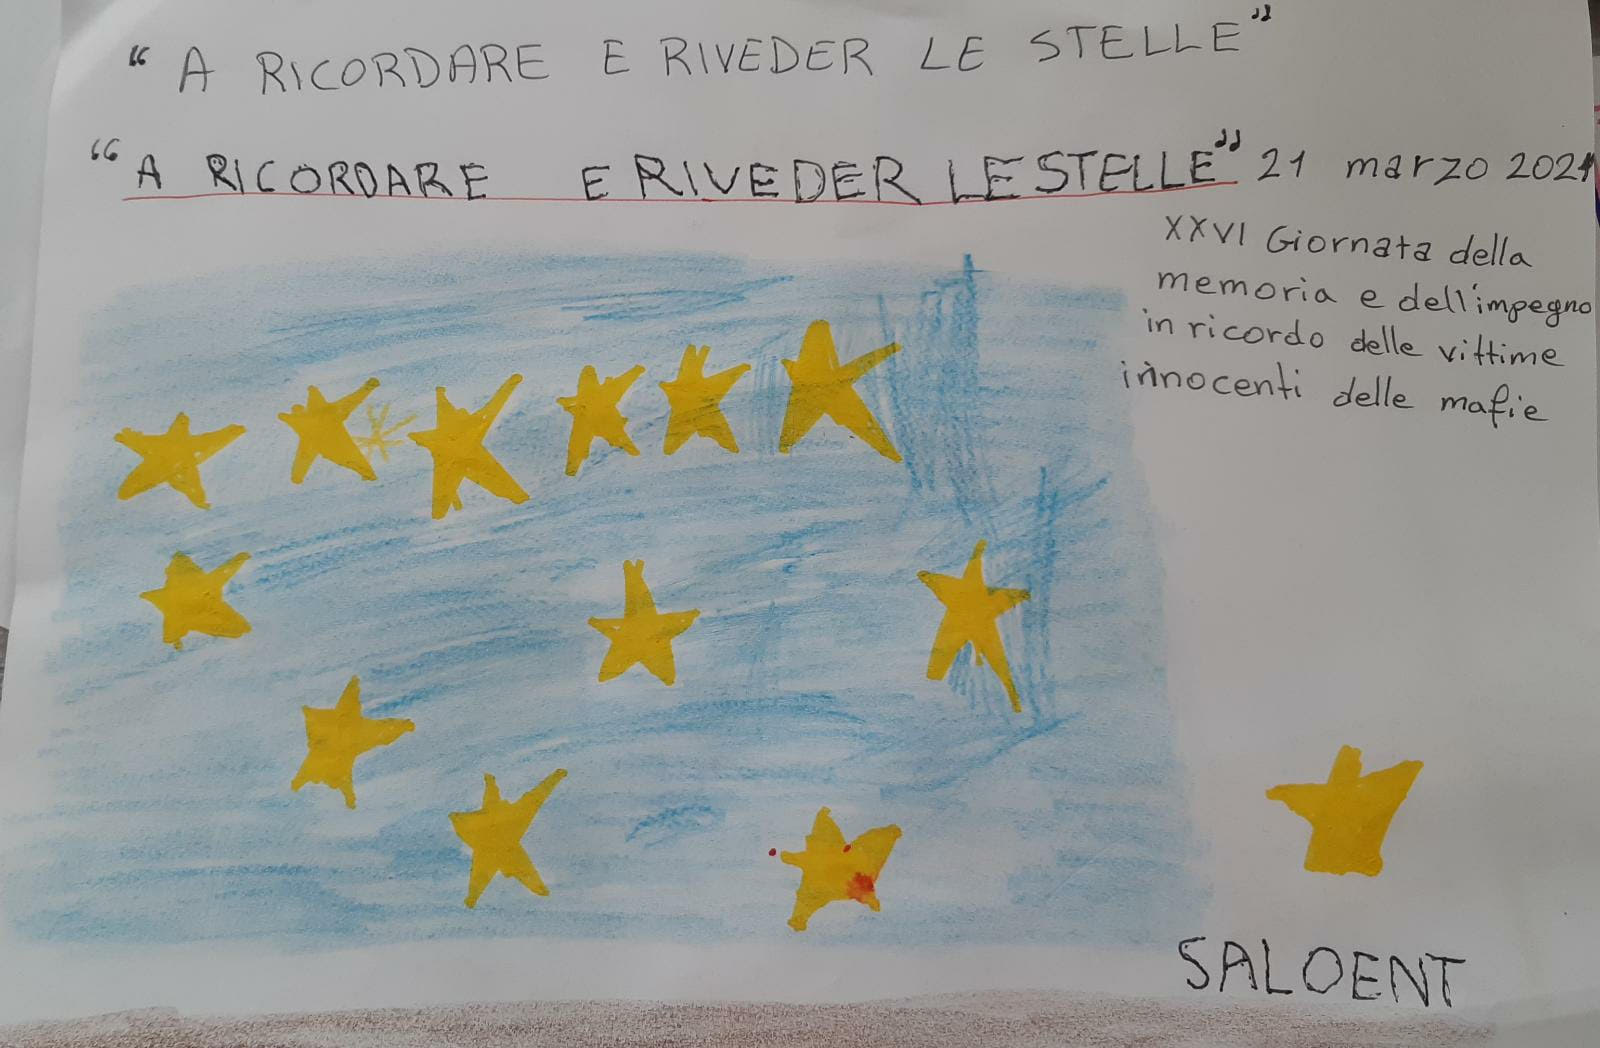 “ A RICORDARE E RIVEDER LE STELLE”
“ A RICORDARE E RIVEDER LE STELLE” 21 marzo 2021
XXVI Giornata della
memoria e dell'impegno
in ricordo delle vittime
innocenti delle mafie
SALOENT